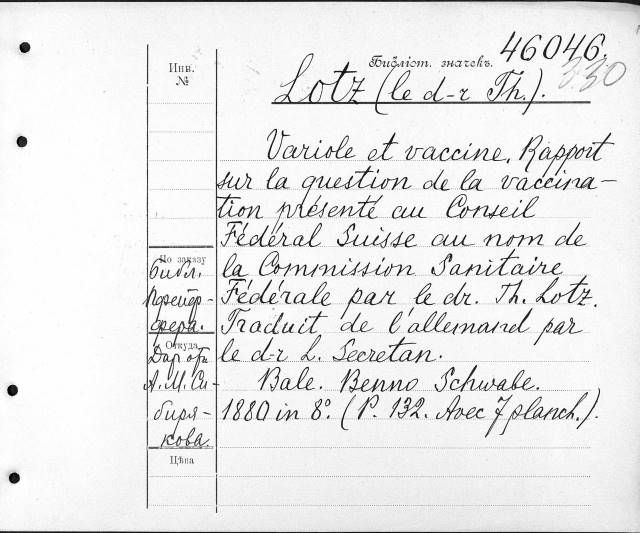 46046.
Инв.
№
Библіот. значекъ.
330
Lotz (le d-r Th.).
Variole et vaccine. Rapport
sur la question de la vaccina-
tion présenté au Conseil
Fédéral Suisse au nom de
la Commission Sanitaire
Fédérale par le dr. Th. Lotz.
Traduit de l'allemand par
le d-r L. Secretan.
Bale. Benno Schwabe.
1880 in 8º. (P. 132. Avec 7 planch.).
По заказу
Библ.
Пфейф-
фера.
Откуда
Даръ отъ
А. М. Си-
биря-
кова.
Цѣна